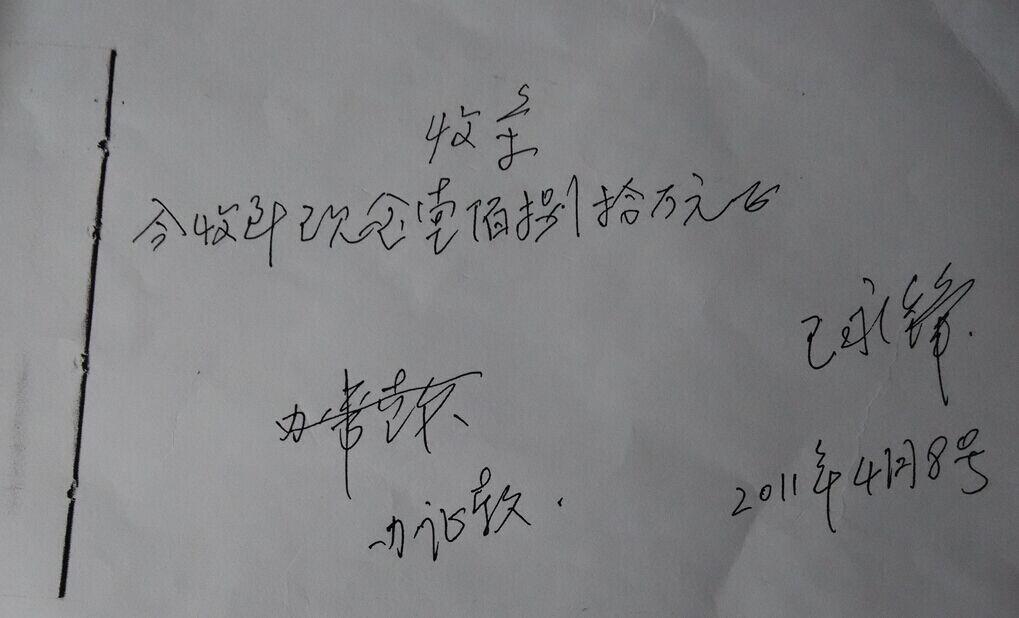 收条
今收到现金壹佰捌拾万元正
永锋
办证款
2011年4月8号